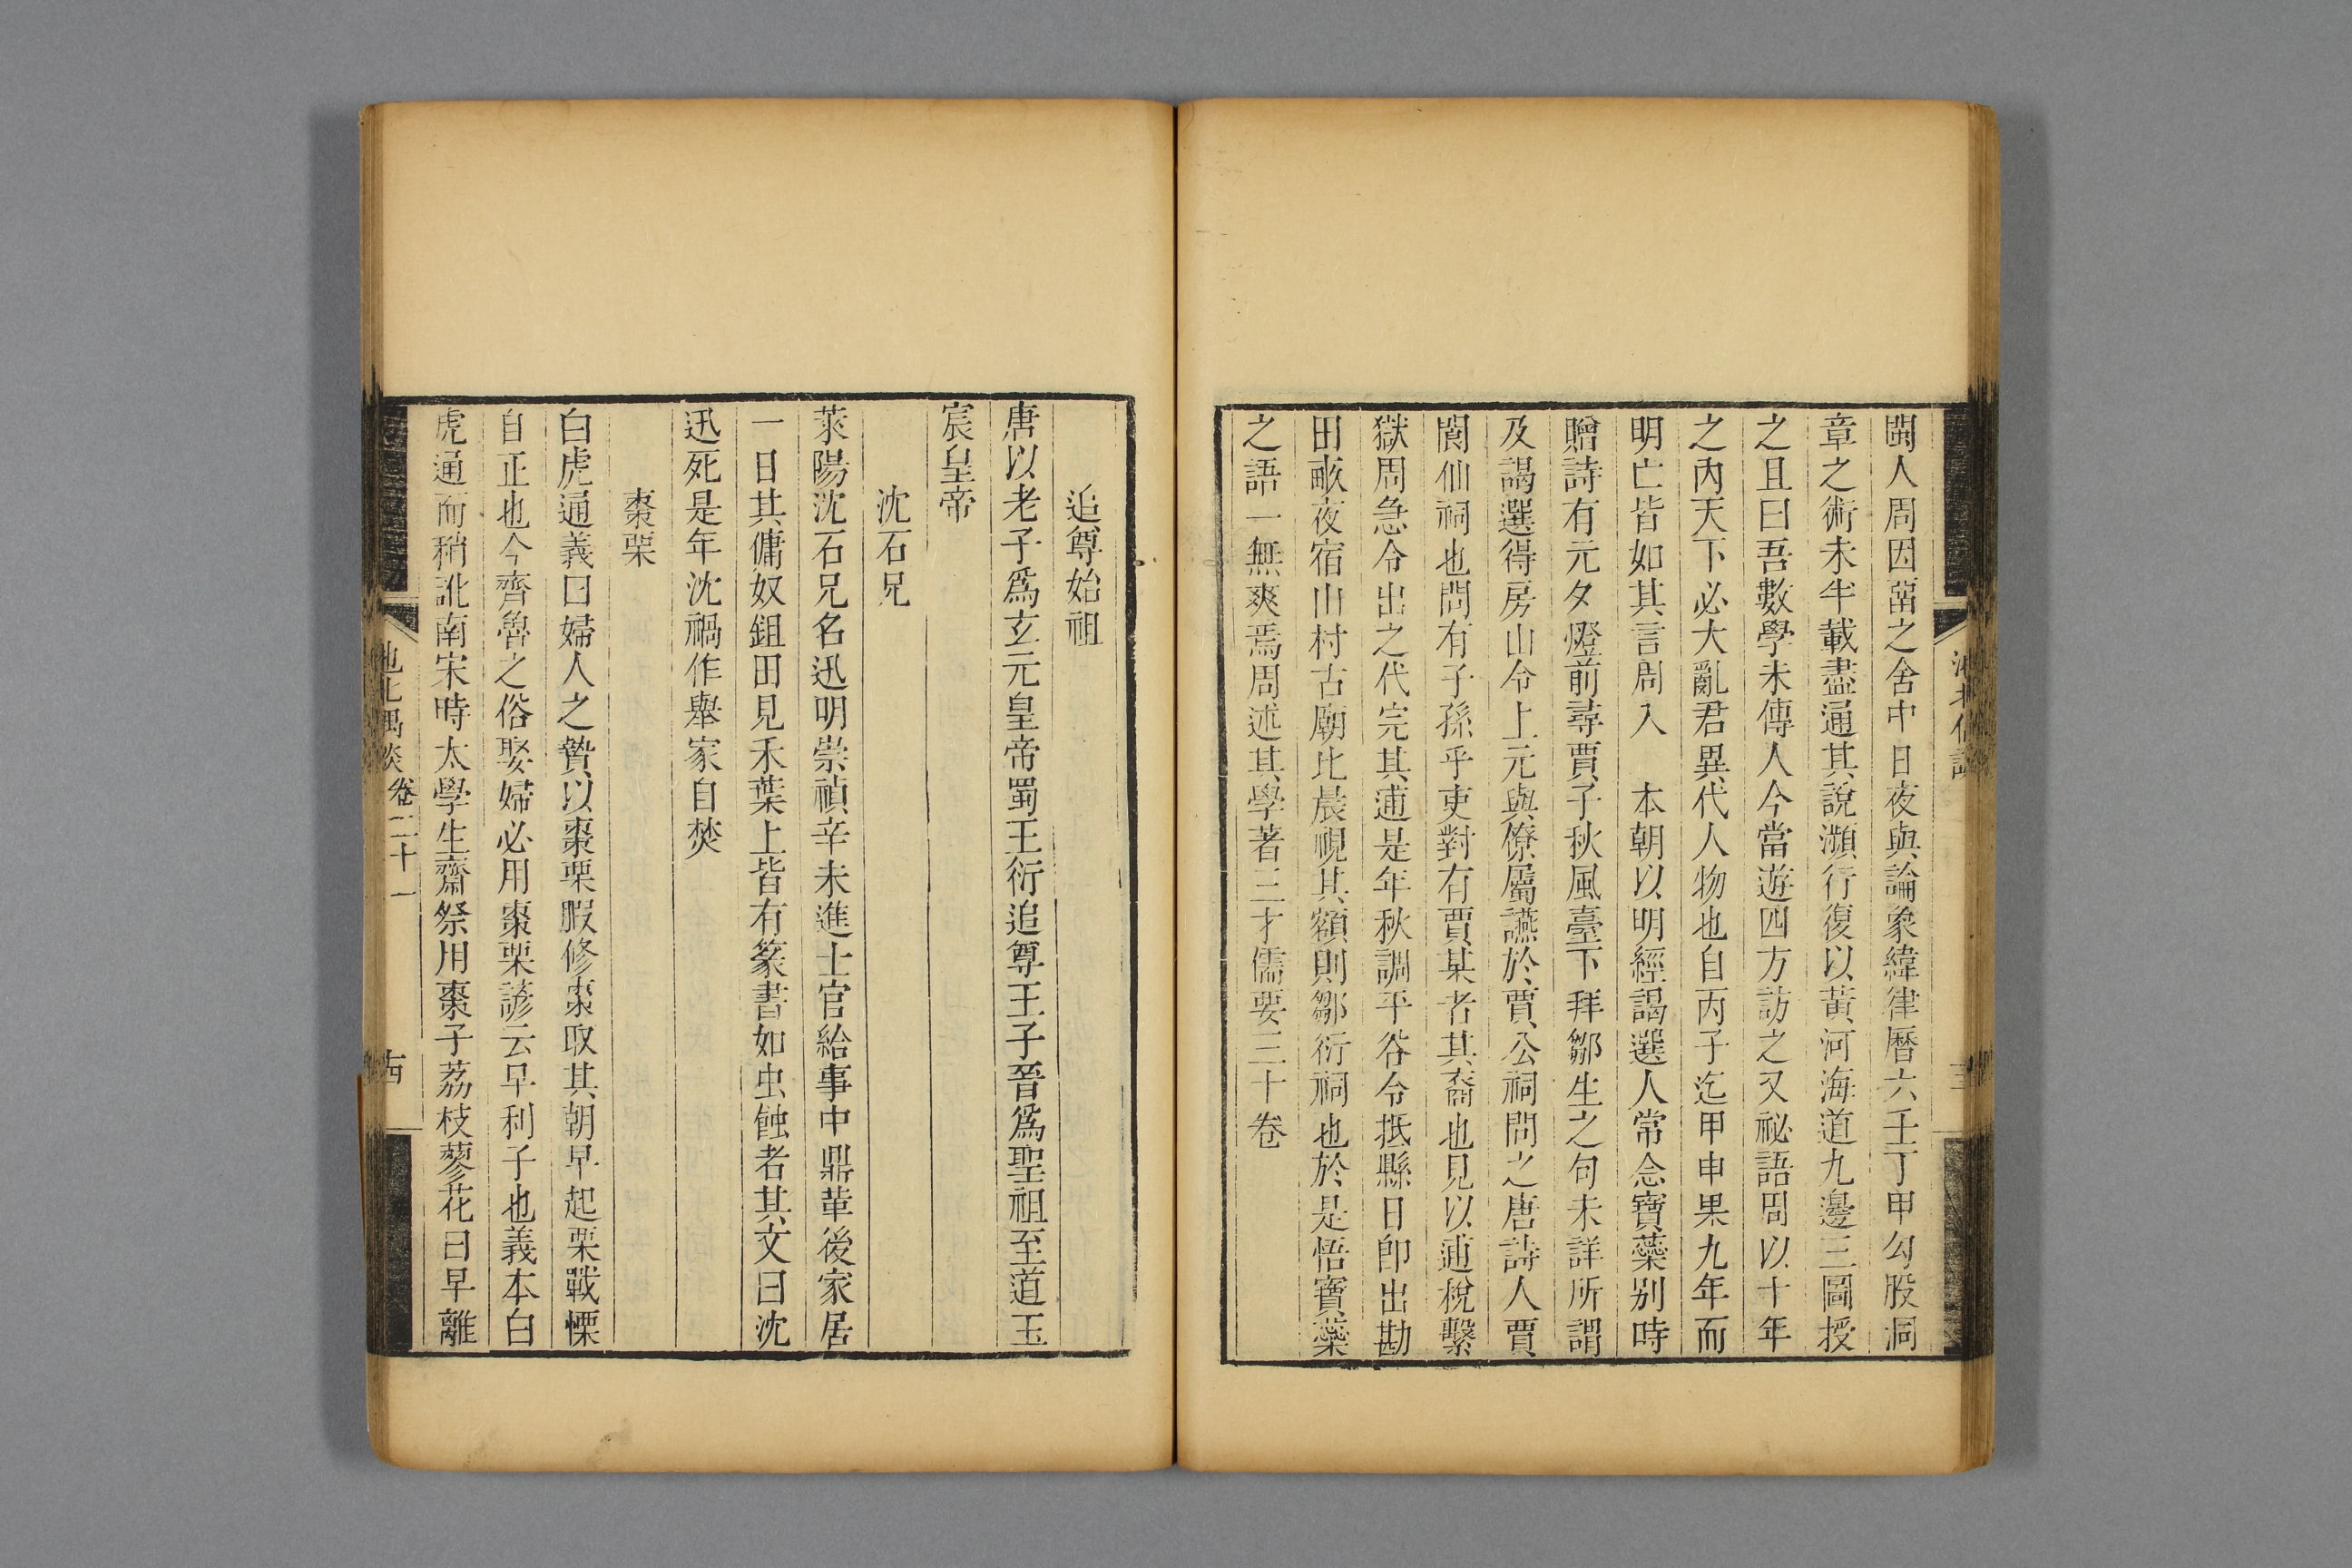 閩人周因菑之舍中日夜與論象緯律曆六壬丁甲勾股洞
章之術未半載盡通其說瀕行復以黃河海道九邊三圖授
之且曰吾數學未傳人今當遊四方訪之又祕語周以十年
之內天下必大亂君異代人物也自丙子迄甲申果九年而
明亡皆如其言周入　本朝以明經謁選人常念寶藥别時
贈詩有元夕燈前尋賈子秋風臺下拜鄒生之句未詳所謂
及謁選得房山令上元與僚屬讌於賈公祠問之唐詩人賈
閬仙祠也問有子孫乎吏對有賈某者其裔也見以逋稅繫
獄周急令出之代完其逋是年秋調平谷令抵縣日卽出勘
田畝夜宿山村古廟比晨視其額則鄒衍祠也於是悟寶藥
之語一無爽焉周述其學著三才儒要三十卷
追尊始祖
唐以老子爲玄元皇帝蜀王衍追尊王子晉爲聖祖至道玉
宸皇帝
沈石兄
萊陽沈石兄名迅明崇禎辛未進士官給事中鼎革後家居
一日其傭奴鉏田見禾葉上皆有篆書如虫蝕者其文曰沈
迅死是年沈禍作舉家自焚
棗栗
白虎通義曰婦人之贄以棗栗腶修棗取其朝早起栗戰慄
自正也今齊魯之俗娶婦必用棗栗諺云早利子也義本白
虎通而稍訛南宋時太學生齋祭用棗子荔枝蓼花曰早離
池北偶談 卷二十一